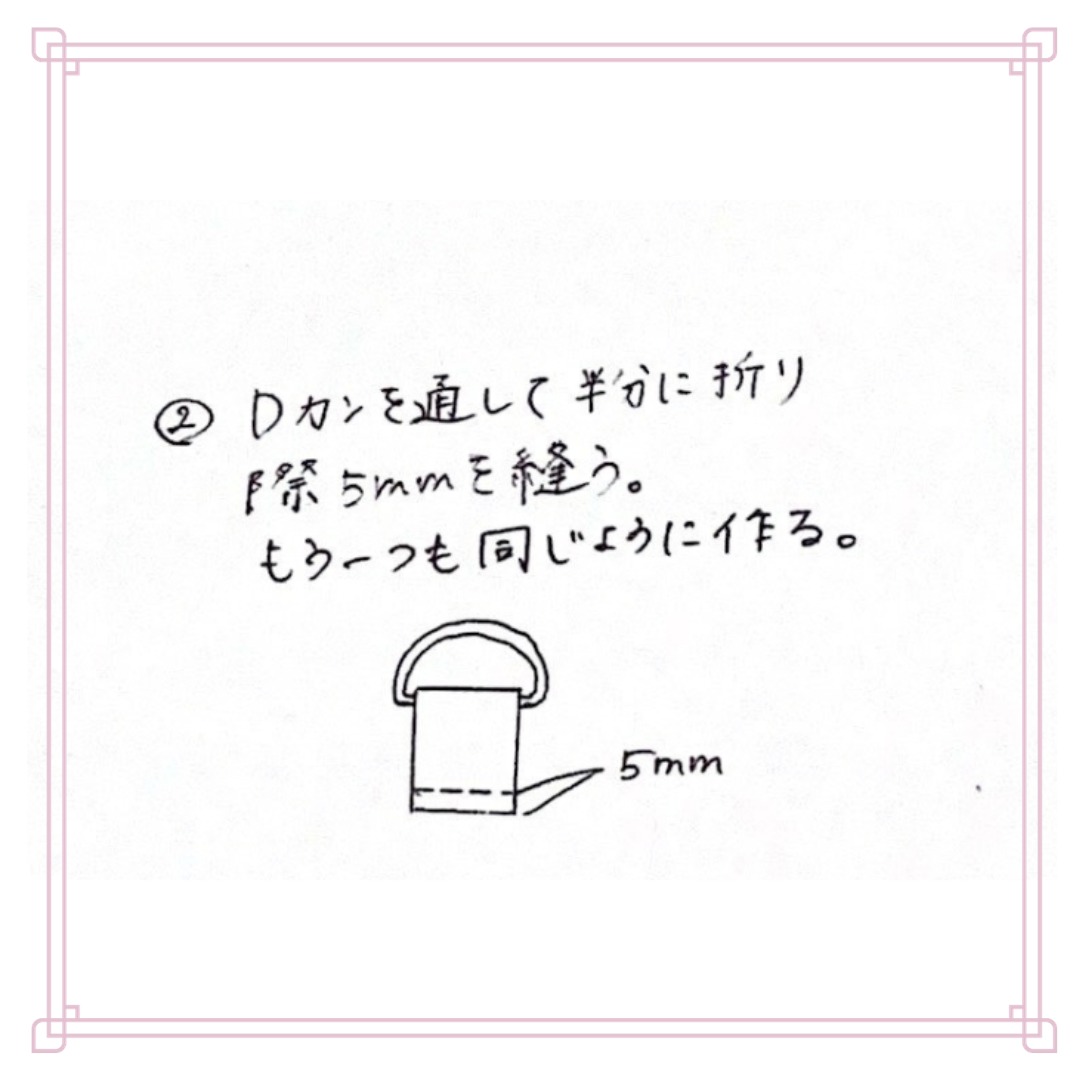 ② Dカンを通して半分に折り
際5mmを縫う。
もう一つも同じように作る。
5mm